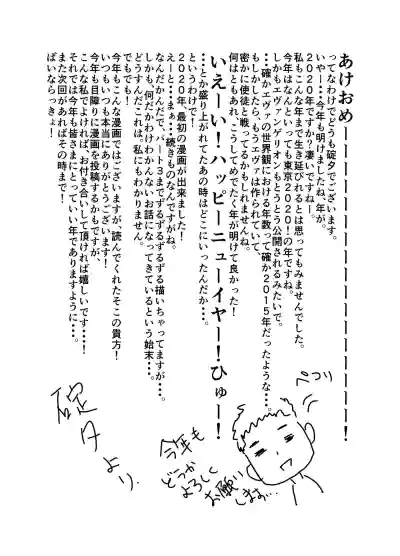 あけおめーーーーーーーーーーーーー！
ってなわけでどうも碇夕でございます。
いやー…今年も明けましたね、年が。
2020年ですか？凄いですねー。
私もこんな年まで生き延びれるとは思ってもみませんでした。
今年はなんといっても東京2020！の年ですね。
しかもエヴァンゲリオンもとうとう公開されるみたいで。
…確かエヴァの世界観における年数って確か2015年だったような…。
もしかしたら、もうエヴァは作られていて、
密かに使徒と戦ってるかもしれませんね。
何はともあれ、こうしてめでたく年が明けて良かった！
いえーい！ハッピーニューイヤー！ひゅー！
…とか盛り上がれてたあの時はどこにいったんだか…。
というわけで！
2020年、最初の漫画が出来ました！
えーと…まぁ…続きものなんですがね。
なんだかんだで、パート3までずるずるずるずる描いちゃってますが…
しかも、何だかわけわかんないお話になってきているという始末…。
どうすんだこれは。私にもわかりません。
でもでも！
今年もこんな漫画ではございますが、読んでくれたそこの貴方！
いつもいつも本当にありがとうございます！
今年も目障りに漫画を投稿するかもですが、
こんな私でよければ、お付き合いして頂ければ嬉しいです…！
それでは今年も皆さまにとっていい年でありますように…！
また次回があればその時まで！
ばいならっきょ！
ぺこり
今年も
どうか
よろしく
お願い
します…
碇夕より。